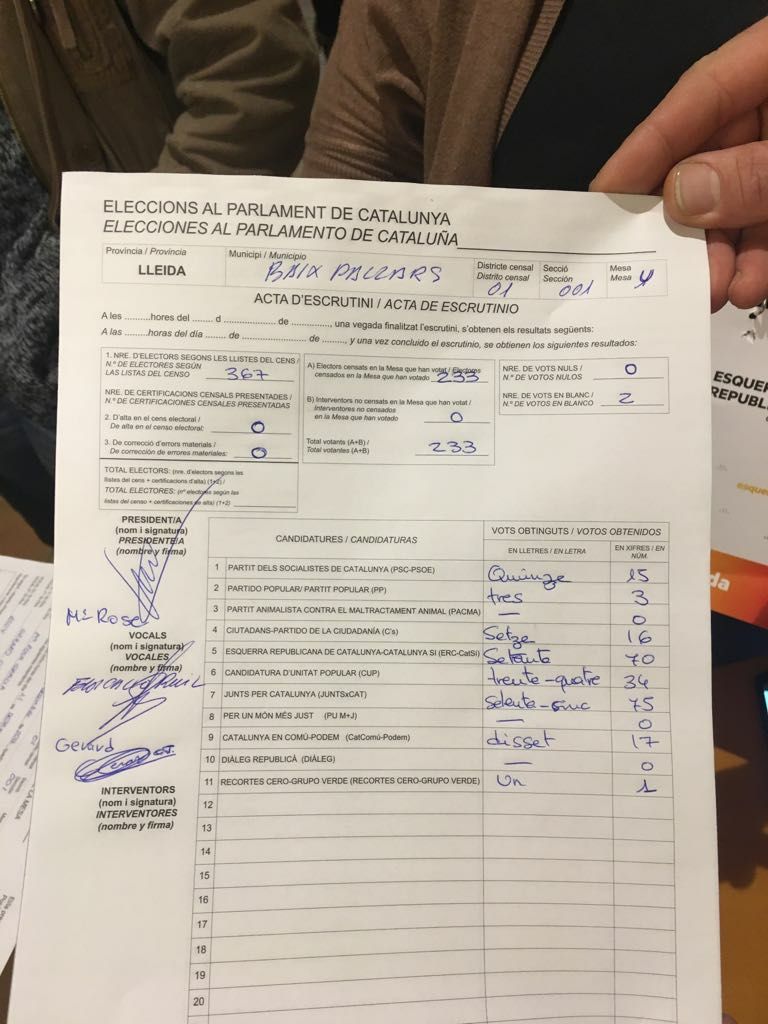 ELECCIONS AL PARLAMENT DE CATALUNYA
ELECCIONES AL PARLAMENTO DE CATALUÑA
Província / Provincia
LLEIDA
Municipi / Municipio
BAIX PALLARS
Districte censal
Distrito censal
01
Secció
Sección
001
Mesa
Mesa
ACTA D'ESCRUTINI / ACTA DE ESCRUTINIO
A les .........hores del ....... d ..................... de ............, una vegada finalitzat l'escrutini, s'obtenen els resultats següents:
A las .........horas del día ....... de ..................... de ............, y una vez concluido el escrutinio, se obtienen los siguientes resultados:
1. NRE. D'ELECTORS SEGONS LES LLISTES DEL CENS /
N.º DE ELECTORES SEGÚN
LAS LISTAS DEL CENSO 367
NRE. DE CERTIFICACIONS CENSALS PRESENTADES /
N.º DE CERTIFICACIONES CENSALES PRESENTADAS
2. D'alta en el cens electoral /
De alta en el censo electoral: 0
3. De correcció d'errors materials /
De corrección de errores materiales: 0
TOTAL ELECTORS: (nre. d'electors segons les
llistes del cens + certificacions d'alta) (1+2) /
TOTAL ELECTORES: (nº electores según las
listas del censo + certificaciones de alta) (1+2)
A) Electors censats en la Mesa que han votat / Electores
censados en la Mesa que han votado 233
B) Interventors no censats en la Mesa que han votat /
Interventores no censados
en la Mesa que han votado 0
Total votants (A+B) /
Total votantes (A+B) 233
NRE. DE VOTS NULS /
N.º DE VOTOS NULOS 0
NRE. DE VOTS EN BLANC /
N.º DE VOTOS EN BLANCO 2
PRESIDENT/A
(nom i signatura)
PRESIDENTE/A
(nombre y firma)
Mª Rose
VOCALS
(nom i signatura)
VOCALES
(nombre y firma)
Gerard
INTERVENTORS
(nom i signatura)
INTERVENTORES
(nombre y firma)
CANDIDATURES / CANDIDATURAS
VOTS OBTINGUTS / VOTOS OBTENIDOS
EN LLETRES / EN LETRA
EN XIFRES / EN NÚM.
1 PARTIT DELS SOCIALISTES DE CATALUNYA (PSC-PSOE) Quinze 15
2 PARTIDO POPULAR/ PARTIT POPULAR (PP) tres 3
3 PARTIT ANIMALISTA CONTRA EL MALTRACTAMENT ANIMAL (PACMA) — 0
4 CIUTADANS-PARTIDO DE LA CIUDADANÍA (C's) Setze 16
5 ESQUERRA REPUBLICANA DE CATALUNYA-CATALUNYA SI (ERC-CatSí) Setanta 70
6 CANDIDATURA D'UNITAT POPULAR (CUP) trenta-quatre 34
7 JUNTS PER CATALUNYA (JUNTSxCAT) Setenta-cinc 75
8 PER UN MÓN MÉS JUST (PU M+J) — 0
9 CATALUNYA EN COMÚ-PODEM (CatComú-Podem) disset 17
10 DIÀLEG REPUBLICÀ (DIÀLEG) — 0
11 RECORTES CERO-GRUPO VERDE (RECORTES CERO-GRUPO VERDE) Un 1
12
13
14
15
16
17
18
19
20
ESQUER
REPUBL